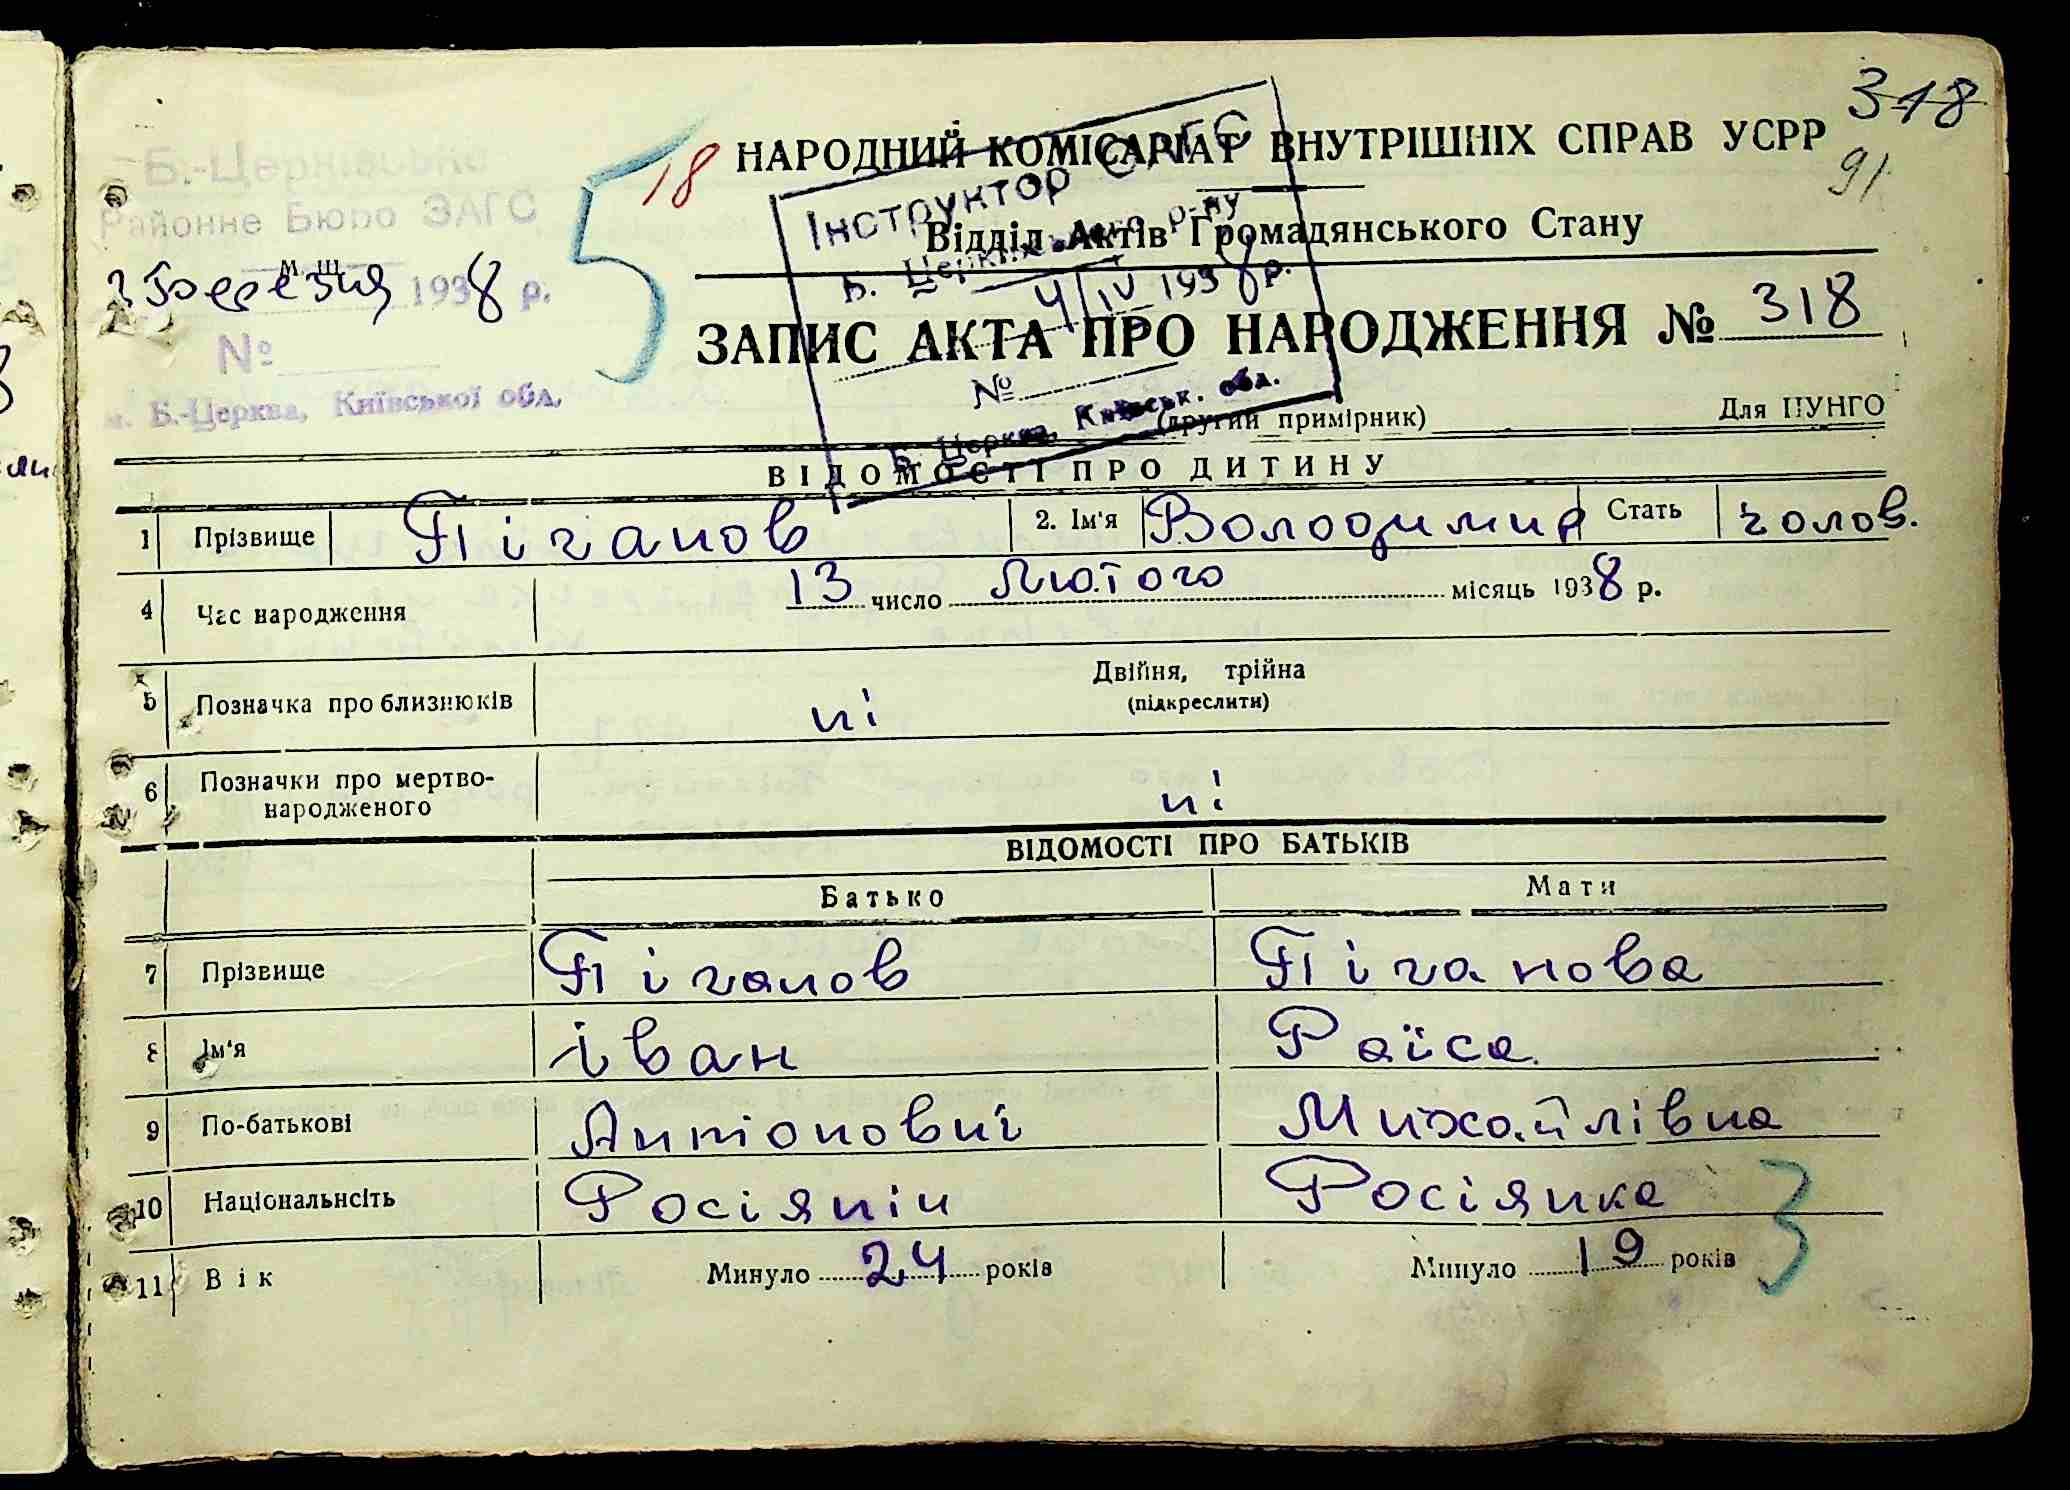 318
91
18
НАРОДНИЙ КОМІСАРІАТ ВНУТРІШНІХ СПРАВ УСРР
Відділ Актів Громадянського Стану
Б.-Церківське
Районне Бюро ЗАГС
м. щ.
березня 1938 р.
№
м. Б.-Церква, Київської обл.
5
Інструктор ОАГС
Б. Церківського р-ну
4/IV 1938 р.
№
Б. Церква, Київськ. обл.
ЗАПИС АКТА ПРО НАРОДЖЕННЯ № 318
(другий примірник) Для ЦУНГО
ВІДОМОСТІ ПРО ДИТИНУ
1 Прізвище Піганов 2. Ім'я Володимир Стать чолов.
4 Час народження 13 число Лютого місяць 1938 р.
5 Позначка про близнюків ні Двійня, трійна
(підкреслити)
6 Позначки про мертво-
народженого ні
ВІДОМОСТІ ПРО БАТЬКІВ
Батько Мати
7 Прізвище Піганов Піганова
8 Ім'я Іван Раїса
9 По-батькові Антонович Михайлівна
10 Національнсіть Росіянін Росіянка
11 Вік Минуло 24 років Минуло 19 років
3